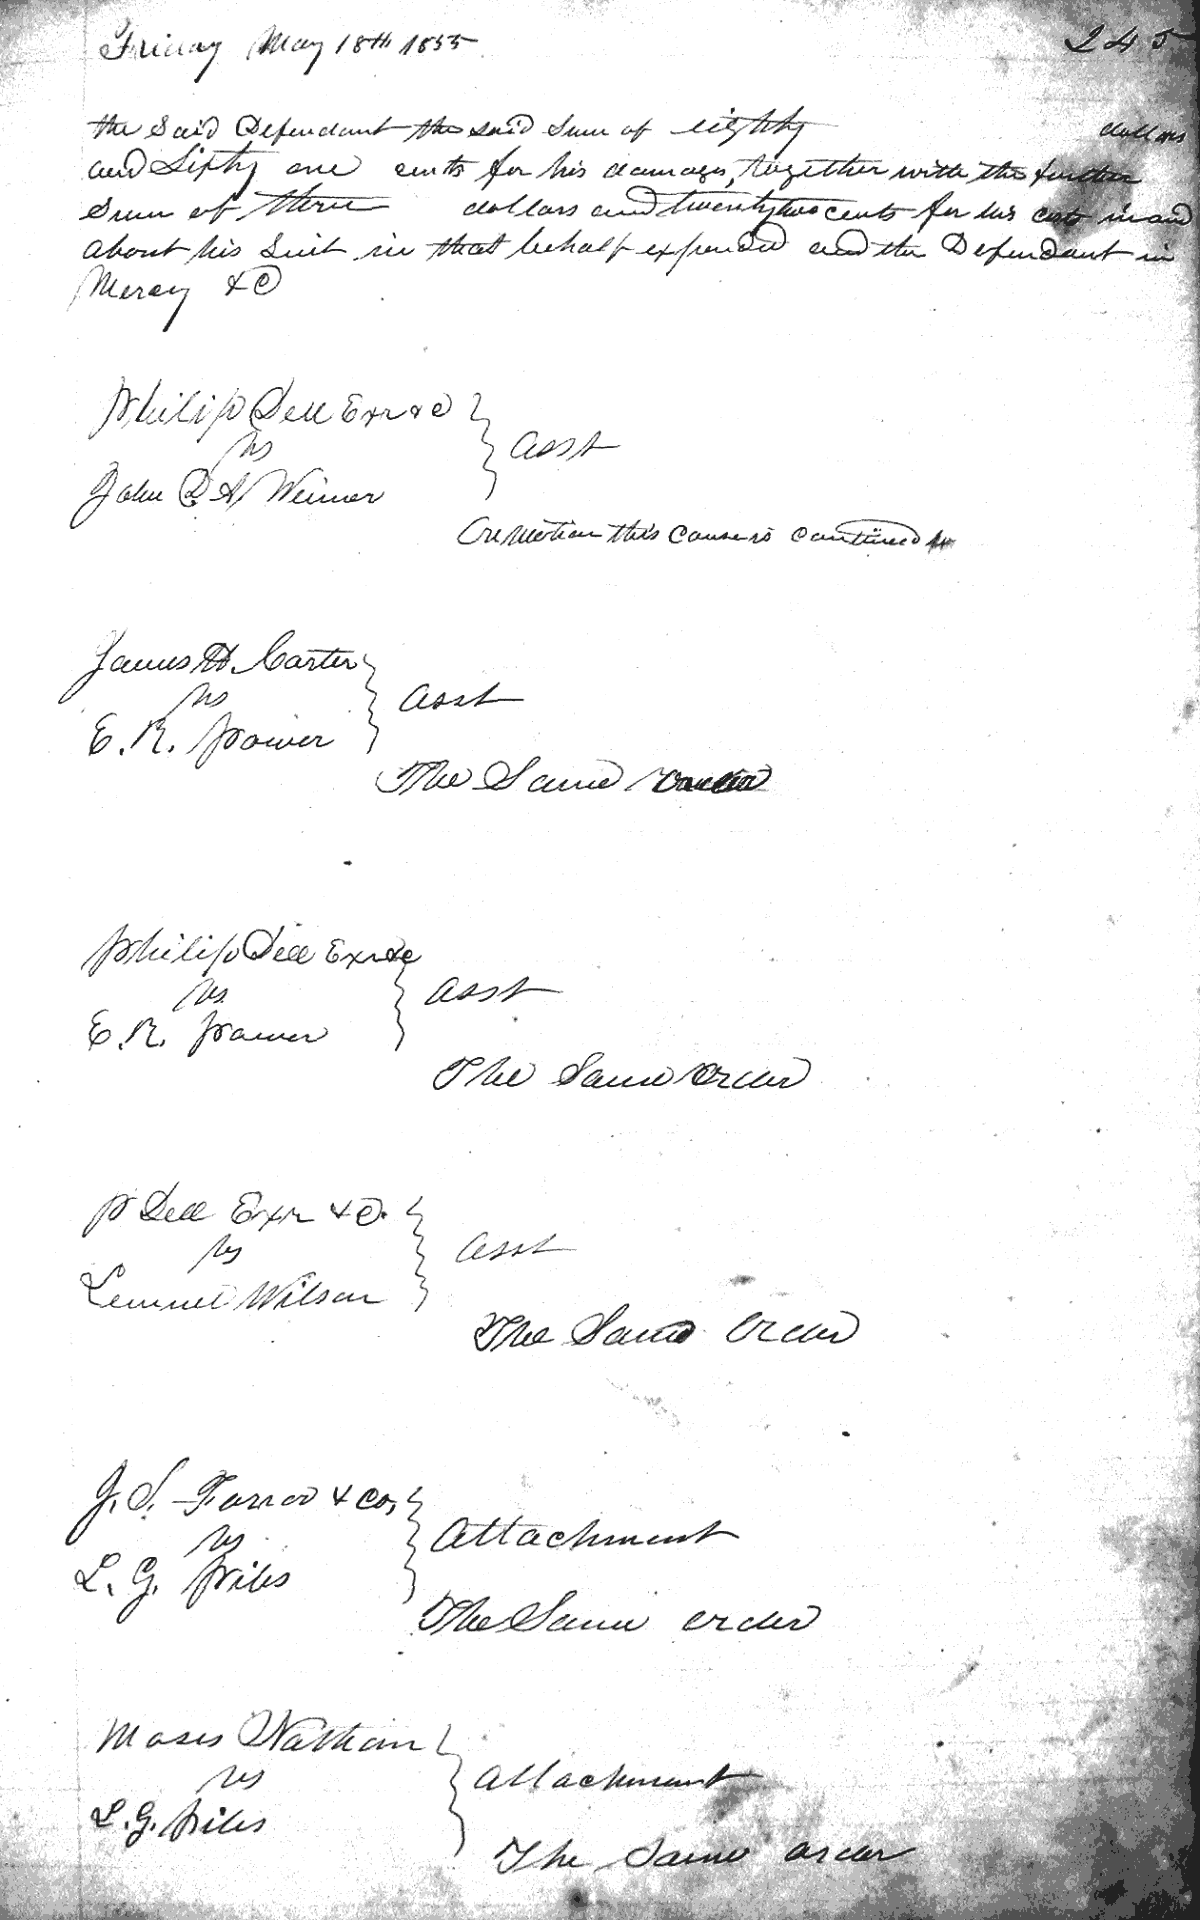 Friday May 18th 1855
245
the Said Defendant the said Sum of eighty dollars
and Sixty one cents for his damages, together with the further
Sum of three dollars and twenty two cents for his costs in and
about his Suit in that behalf expended and the Defendant in
Mercy &C
Philip Dell Exr &c
vs
Asst
John Weimer
On motion this cause is continued
James H. Carter
vs
Asst
E. R.
The Same order
Philip Dell Exr &c
vs
Asst
E. R.
The Same order
P Dell Exr &C.
vs
Asst
Lemuel Wilson
The Same order
J. S. &Co,
vs
Attachment
L. G. Piles
The Same order
Moses Nathan
vs
Attachment
L. G. Piles
The Same order